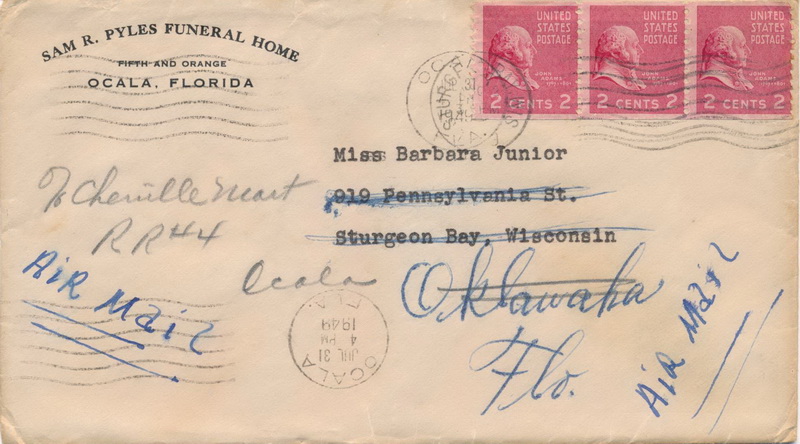 SAM R. PYLES FUNERAL HOME
FIFTH AND ORANGE
OCALA, FLORIDA
UNITED STATES POSTAGE
JOHN ADAMS
2 CENTS 2
UNITED STATES POSTAGE
JOHN ADAMS
2 CENTS 2
UNITED STATES POSTAGE
JOHN ADAMS
2 CENTS 2
Miss Barbara Junior
919 Pennsylvania St.
Sturgeon Bay, Wisconsin
% Chenille Mart
RR#4
Ocala
Oklawaha
Flo.
AiR MAiL
AiR MAiL
OCALA
JUL 31
4 PM
1949
FLA.